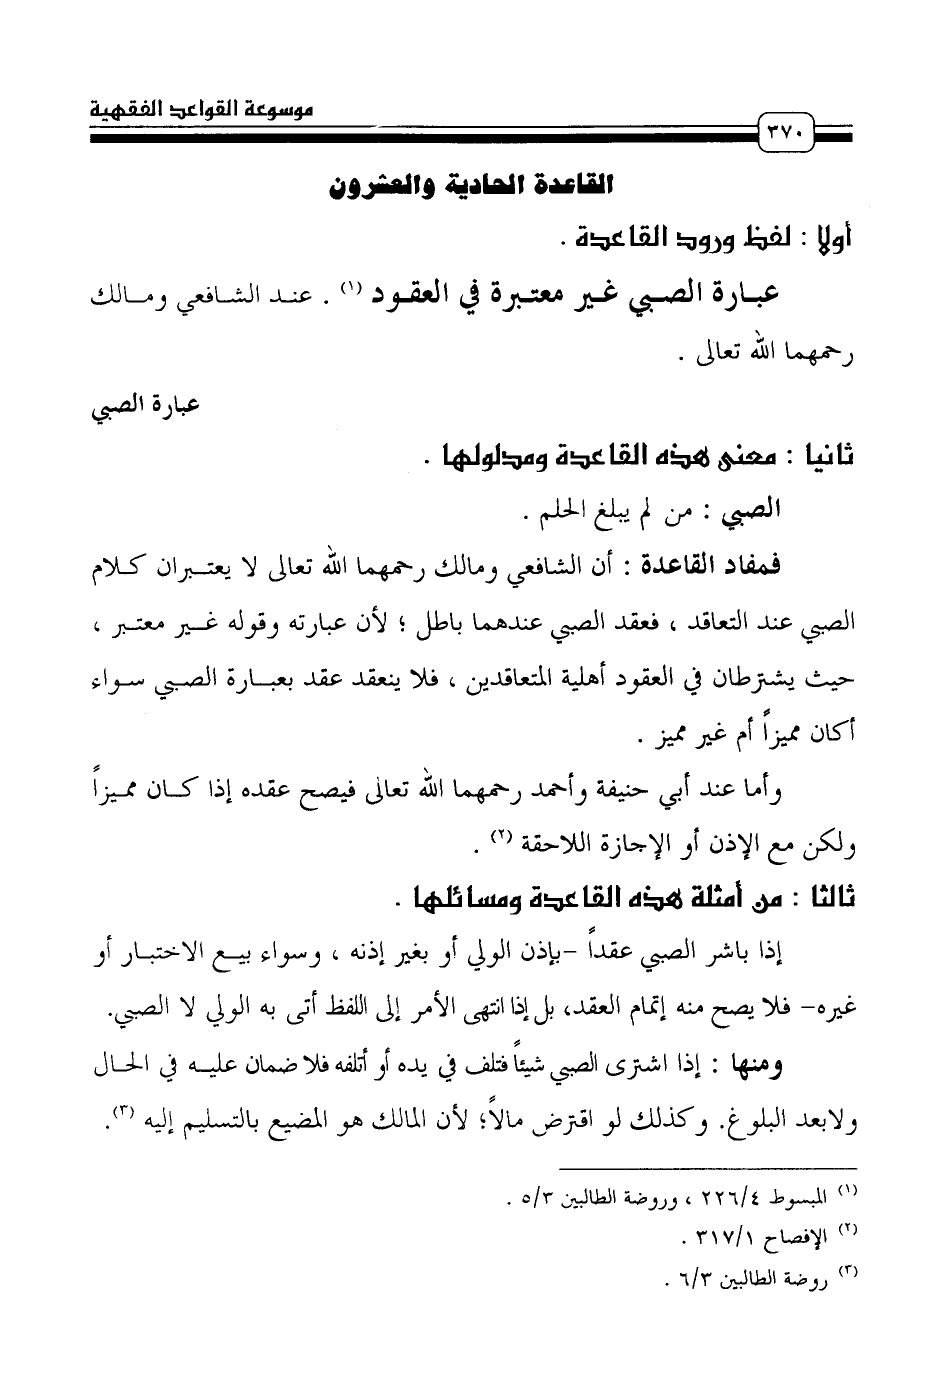 موسوعة القواعد الفقهية
٣٧٠
القاعدة الحادية والعشرون
أولا : لفظ ورود القاعدة .
عبارة الصبي غير معتبرة في العقود (١) . عند الشافعي ومالك
رحمهما الله تعالى .
عبارة الصبي
ثانيا : معنى هذه القاعدة ومدلولها .
الصبي : من لم يبلغ الحلم .
فمفاد القاعدة : أن الشافعي ومالك رحمهما الله تعالى لا يعتبران كلام
الصبي عند التعاقد ، فعقد الصبي عندهما باطل ؛ لأن عبارته وقوله غير معتبر ،
حيث يشترطان في العقود أهلية المتعاقدين ، فلا ينعقد عقد بعبارة الصبي سواء
أكان مميزاً أم غير مميز .
وأما عند أبي حنيفة وأحمد رحمهما الله تعالى فيصح عقده إذا كان مميزاً
ولكن مع الإذن أو الإجازة اللاحقة (٢) .
ثالثا : من أمثلة هذه القاعدة ومسائلها .
إذا باشر الصبي عقداً -بإذن الولي أو بغير إذنه ، وسواء بيع الاختبار أو
غيره- فلا يصح منه إتمام العقد، بل إذا انتهى الأمر إلى اللفظ أتى به الولي لا الصبي.
ومنها : إذا اشترى الصبي شيئاً فتلف في يده أو أتلفه فلا ضمان عليه في الحال
ولا بعد البلوغ. وكذلك لو اقترض مالاً؛ لأن المالك هو المضيع بالتسليم إليه (٣).
(١) المبسوط ٢٢٦/٤ ، وروضة الطالبين ٥/٣ .
(٢) الإفصاح ٣١٧/١ .
(٣) روضة الطالبين ٦/٣ .